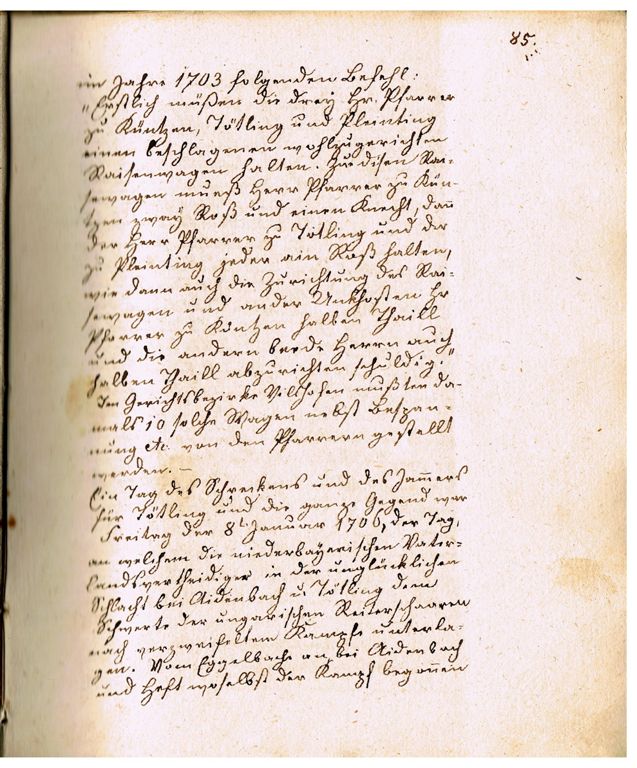 85.
im Jahre 1703 folgenden Befehl:
„Erstlich müßen die drey Hr. Pfarrer
zu Küntzen, Tötling und Pleinting
einen beschlagenen wohlzugerichten
Raisenwagen halten. Zue disen Rai-
sewagen mueß Herr Pfarrer zu Kün-
tzen zway Roß und einen Knecht, dan
der Herr Pfarrer zu Tötling und der
zu Pleinting jeder ain Roß halten,
wie dann auch die Zurichtung des Rai-
sewagen und ander Unkhosten Hr
Pfarrer zu Küntzen halben Thaill
und die andern beede Herrn auch
halben Thaill abzurichten schuldig.“
Im Gerichtsbezirke Vilshofen mußten da-
mals 10 solche Wagen nebst Bespan-
nung etc. von den Pfarrern gestellt
werden. –
Ein Tag des Schreckens und des Jammers
für Tötling und die ganze Gegend war
Freitag der 8t Januar 1706, der Tag,
an welchem die niederbayerischen Vater-
landsvertheidiger in der unglücklichen
Schlacht bei Aidenbach u. Tötling dem
Schwerte der ungarischen Reiterschaaren
nach verzweifeltem Kampfe unterla-
gen. Vom Eggelbache an bei Aidenbach
und Heft woselbst der Kampf begonnen